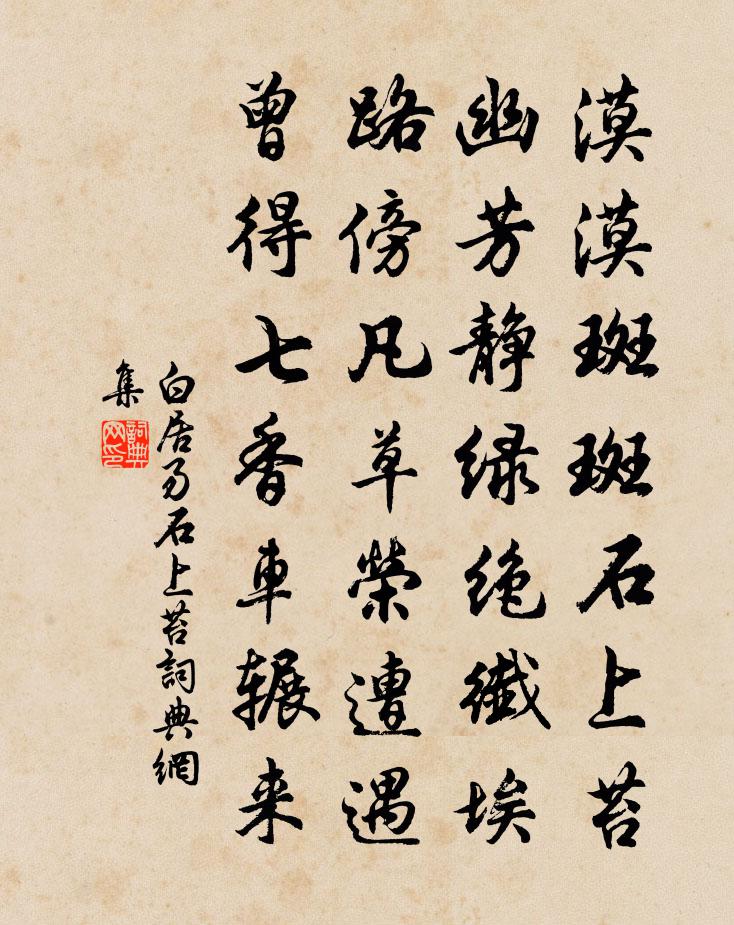 漠漠斑斑石上苔
幽芳静绿绝纖埃
路傍凡草榮遭遇
曾得七香車辗来
白居易石上苔詞典網
集
詞典
网印